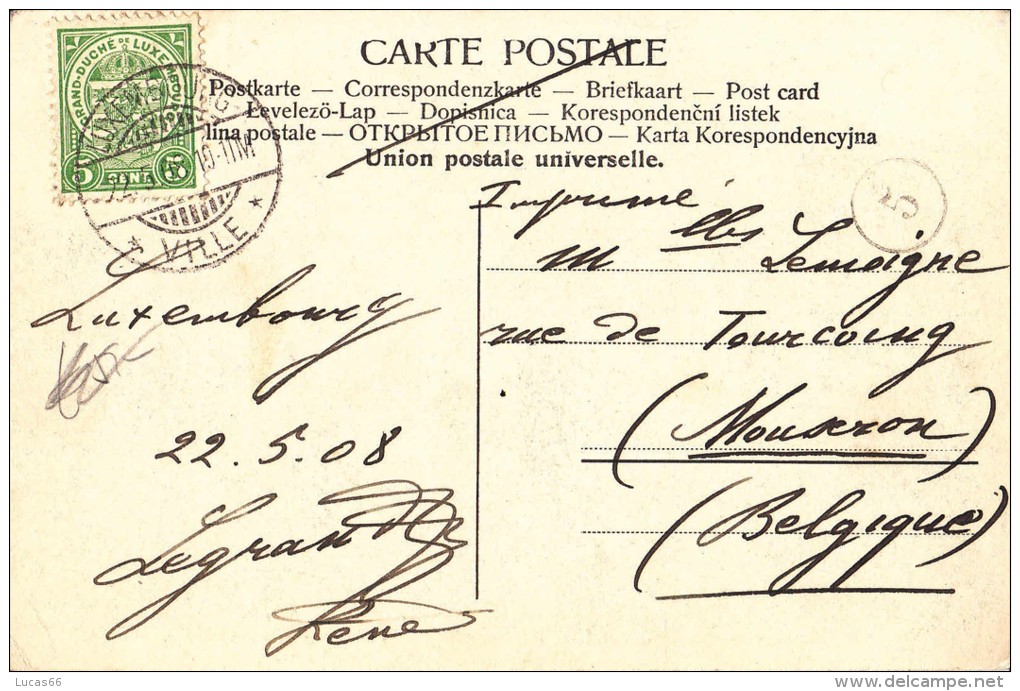 CARTE POSTALE
Postkarte — Correspondenzkarte — Briefkaart — Post card
Levelezö-Lap — Dopisnica — Korespondenční listek
lina postale — ОТКРЫТОЕ ПИСЬМО — Karta Korespondencyjna
Union postale universelle.
GRAND-DUCHÉ DE LUXEMBOURG
5 CENTS
VILLE
Imprimé
5
Mlles Lemoigne
rue de Tourcoing
(Mouscron)
(Belgique)
Luxembourg
22.5.08
Legrand
René
Lucas66
delcampe.net